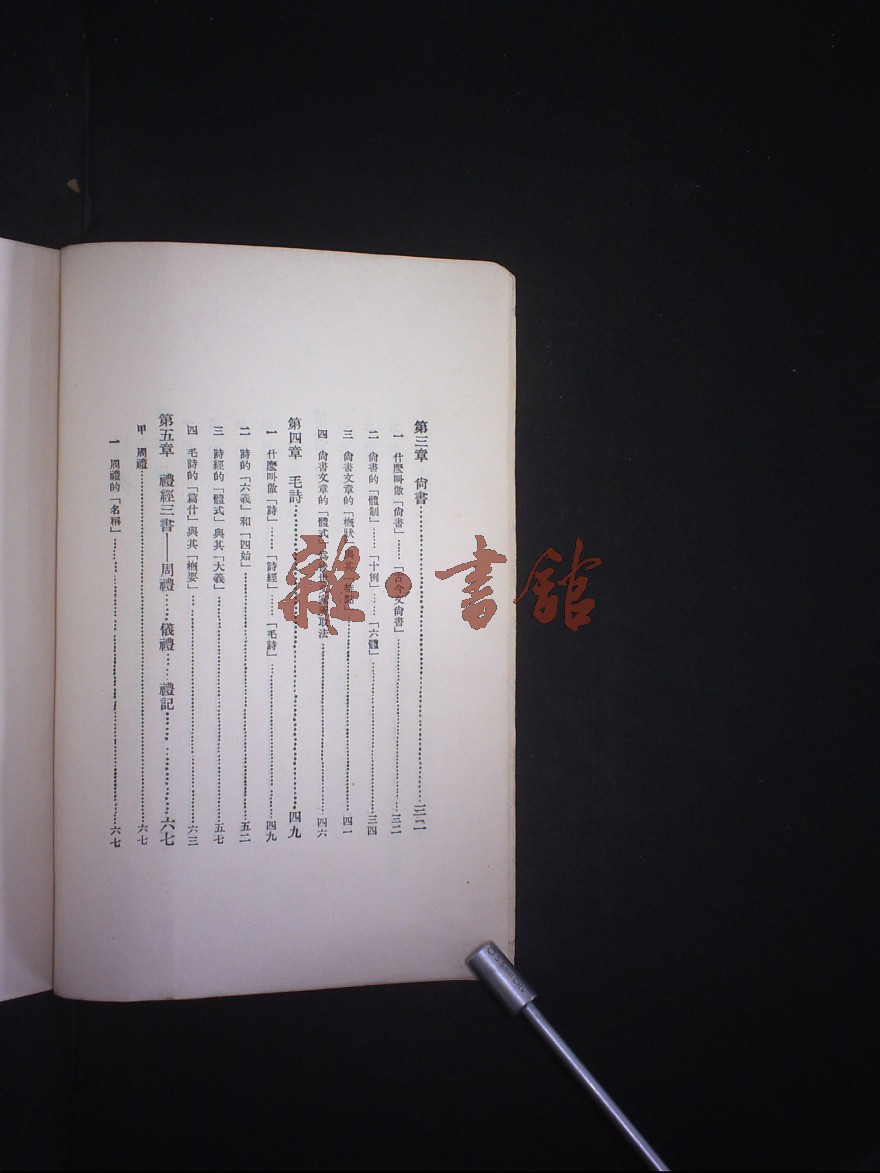 第三章　尙書……三二
一　什麼叫做「尙書」……「古今文尙書」……三二
二　尙書的「體制」……「十例」……「六體」……三四
三　尙書文章的「概狀」與其「特點」……四一
四　尙書文章的「體式」法……四六
第四章　毛詩……四九
一　什麼叫做「詩」……「詩經」……「毛詩」……四九
二　詩的「六義」和「四始」……五二
三　詩經的「體式」與其「大義」……五七
四　毛詩的「篇什」與其「概要」……六三
第五章　禮經三書——周禮……儀禮……禮記……六七
甲　周禮……六七
一　周禮的「名稱」……六七
雜·書館